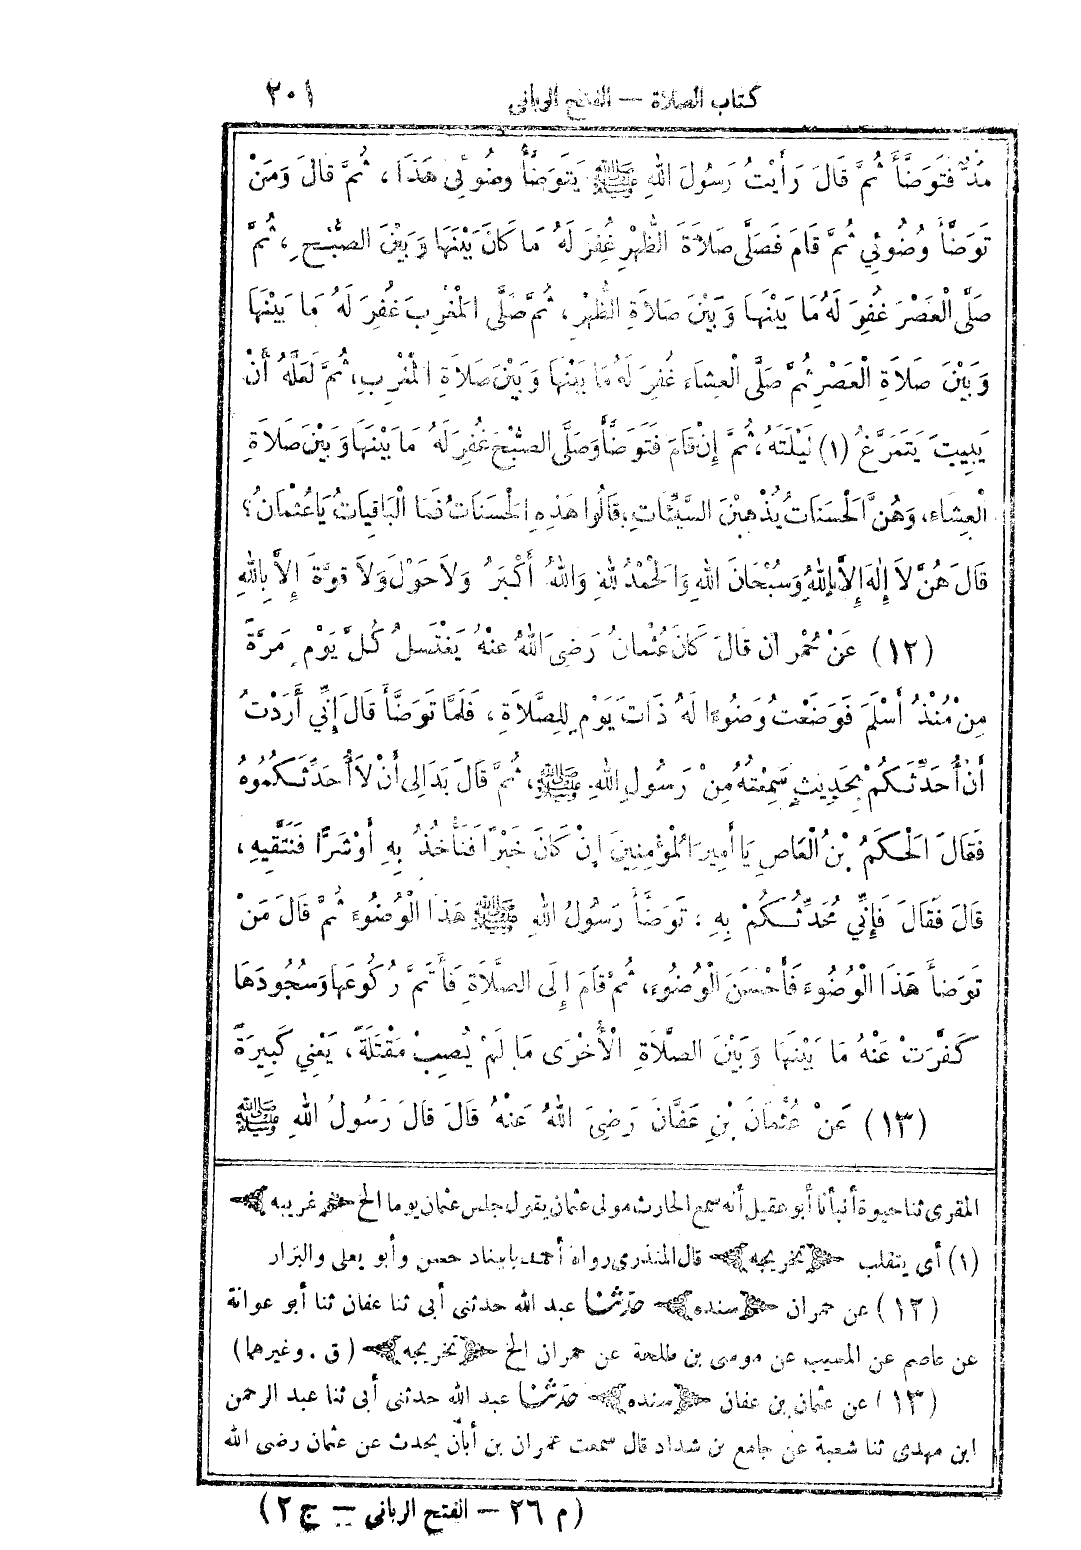 كتاب الصلاة — الفتح الربانى ٢٠١
مُدٌّ فَتَوَضَّأَ ثُمَّ قَالَ رَأَيْتُ رَسُولَ اللهِ ﷺ يَتَوَضَّأُ وُضُوئِي هَذَا ، ثُمَّ قَالَ وَمَنْ
تَوَضَّأَ وُضُوئِي ثُمَّ قَامَ فَصَلَّى صَلاَةَ الظُّهْرِ غُفِرَ لَهُ مَا كَانَ بَيْنَهَا وَبَيْنَ الصُّبْحِ ، ثُمَّ
صَلَّى الْعَصْرَ غُفِرَ لَهُ مَا بَيْنَهَا وَبَيْنَ صَلاَةِ الظُّهْرِ ، ثُمَّ صَلَّى الْمَغْرِبَ غُفِرَ لَهُ مَا بَيْنَهَا
وَبَيْنَ صَلاَةِ الْعَصْرِ ثُمَّ صَلَّى الْعِشَاءَ غُفِرَ لَهُ مَا بَيْنَهَا وَبَيْنَ صَلاَةِ الْمَغْرِبِ، ثُمَّ لَعَلَّهُ أَنْ
يَبِيتَ يَتَمَرَّغُ (١) لَيْلَتَهُ ، ثُمَّ إِنْ قَامَ فَتَوَضَّأَ وَصَلَّى الصُّبْحَ غُفِرَ لَهُ مَا بَيْنَهَا وَبَيْنَ صَلاَةِ
الْعِشَاءِ، وَهُنَّ الْحَسَنَاتُ يُذْهِبْنَ السَّيِّئَاتِ ؛ قَالُوا هَذِهِ الْحَسَنَاتُ فَمَا الْبَاقِيَاتُ يَا عُثْمَانُ ؟
قَالَ هُنَّ لاَ إِلَهَ إِلاَّ اللهُ وَسُبْحَانَ اللهِ وَالْحَمْدُ للهِ وَاللهُ أَكْبَرُ وَلاَ حَوْلَ وَلاَ قُوَّةَ إِلاَّ بِاللهِ
(١٢) عَنْ حُمْرَانَ قَالَ كَانَ عُثْمَانُ رَضِيَ اللهُ عَنْهُ يَغْتَسِلُ كُلَّ يَوْمٍ مَرَّةً
مِنْ مُنْذُ أَسْلَمَ فَوَضَعْتُ وَضُوءًا لَهُ ذَاتَ يَوْمٍ لِلصَّلاَةِ ، فَلَمَّا تَوَضَّأَ قَالَ إِنِّي أَرَدْتُ
أَنْ أُحَدِّثَكُمْ بِحَدِيثٍ سَمِعْتُهُ مِنْ رَسُولِ اللهِ ﷺ ، ثُمَّ قَالَ بَدَا لِي أَنْ لاَ أُحَدِّثَكُمُوهُ
فَقَالَ الْحَكَمُ بْنُ الْعَاصِ يَا أَمِيرَ الْمُؤْمِنِينَ إِنْ كَانَ خَيْرًا فَنَأْخُذُ بِهِ أَوْ شَرًّا فَنَتَّقِيهِ ،
قَالَ فَقَالَ فَإِنِّي مُحَدِّثُكُمْ بِهِ ؛ تَوَضَّأَ رَسُولُ اللهِ ﷺ هَذَا الْوُضُوءَ ثُمَّ قَالَ مَنْ
تَوَضَّأَ هَذَا الْوُضُوءَ فَأَحْسَنَ الْوُضُوءَ، ثُمَّ قَامَ إِلَى الصَّلاَةِ فَأَتَمَّ رُكُوعَهَا وَسُجُودَهَا
كَفَّرَتْ عَنْهُ مَا بَيْنَهَا وَبَيْنَ الصَّلاَةِ الْأُخْرَى مَا لَمْ يُصِبْ مَقْتَلَةً ، يَعْنِي كَبِيرَةً
(١٣) عَنْ عُثْمَانَ بْنِ عَفَّانَ رَضِيَ اللهُ عَنْهُ قَالَ قَالَ رَسُولُ اللهِ ﷺ
المقرى ثنا حيوة أنبأنا أبو عقيل أنه سمع الحارث مولى عثمان يقول جلس عثمان يوما الخ ﴿غريبه﴾
(١) أى يتقلب ﴿تخريجه﴾ قال المنذرى رواه أحمد باسناد حسن وأبو يعلى والبزار
(١٢) عن حمران ﴿سنده﴾ حدثنا عبد الله حدثنى أبى ثنا عفان ثنا أبو عوانة
عن عاصم عن المسيب عن موسى بن طلحة عن حمران الخ ﴿تخريجه﴾ (ق . وغيرهما)
(١٣) عن عثمان بن عفان ﴿سنده﴾ حدثنا عبد الله حدثنى أبى ثنا عبد الرحمن
ابن مهدى ثنا شعبة عن جامع بن شداد قال سمعت حمران بن أبان يحدث عن عثمان رضى الله
(م ٢٦ — الفتح الربانى — ج ٢)